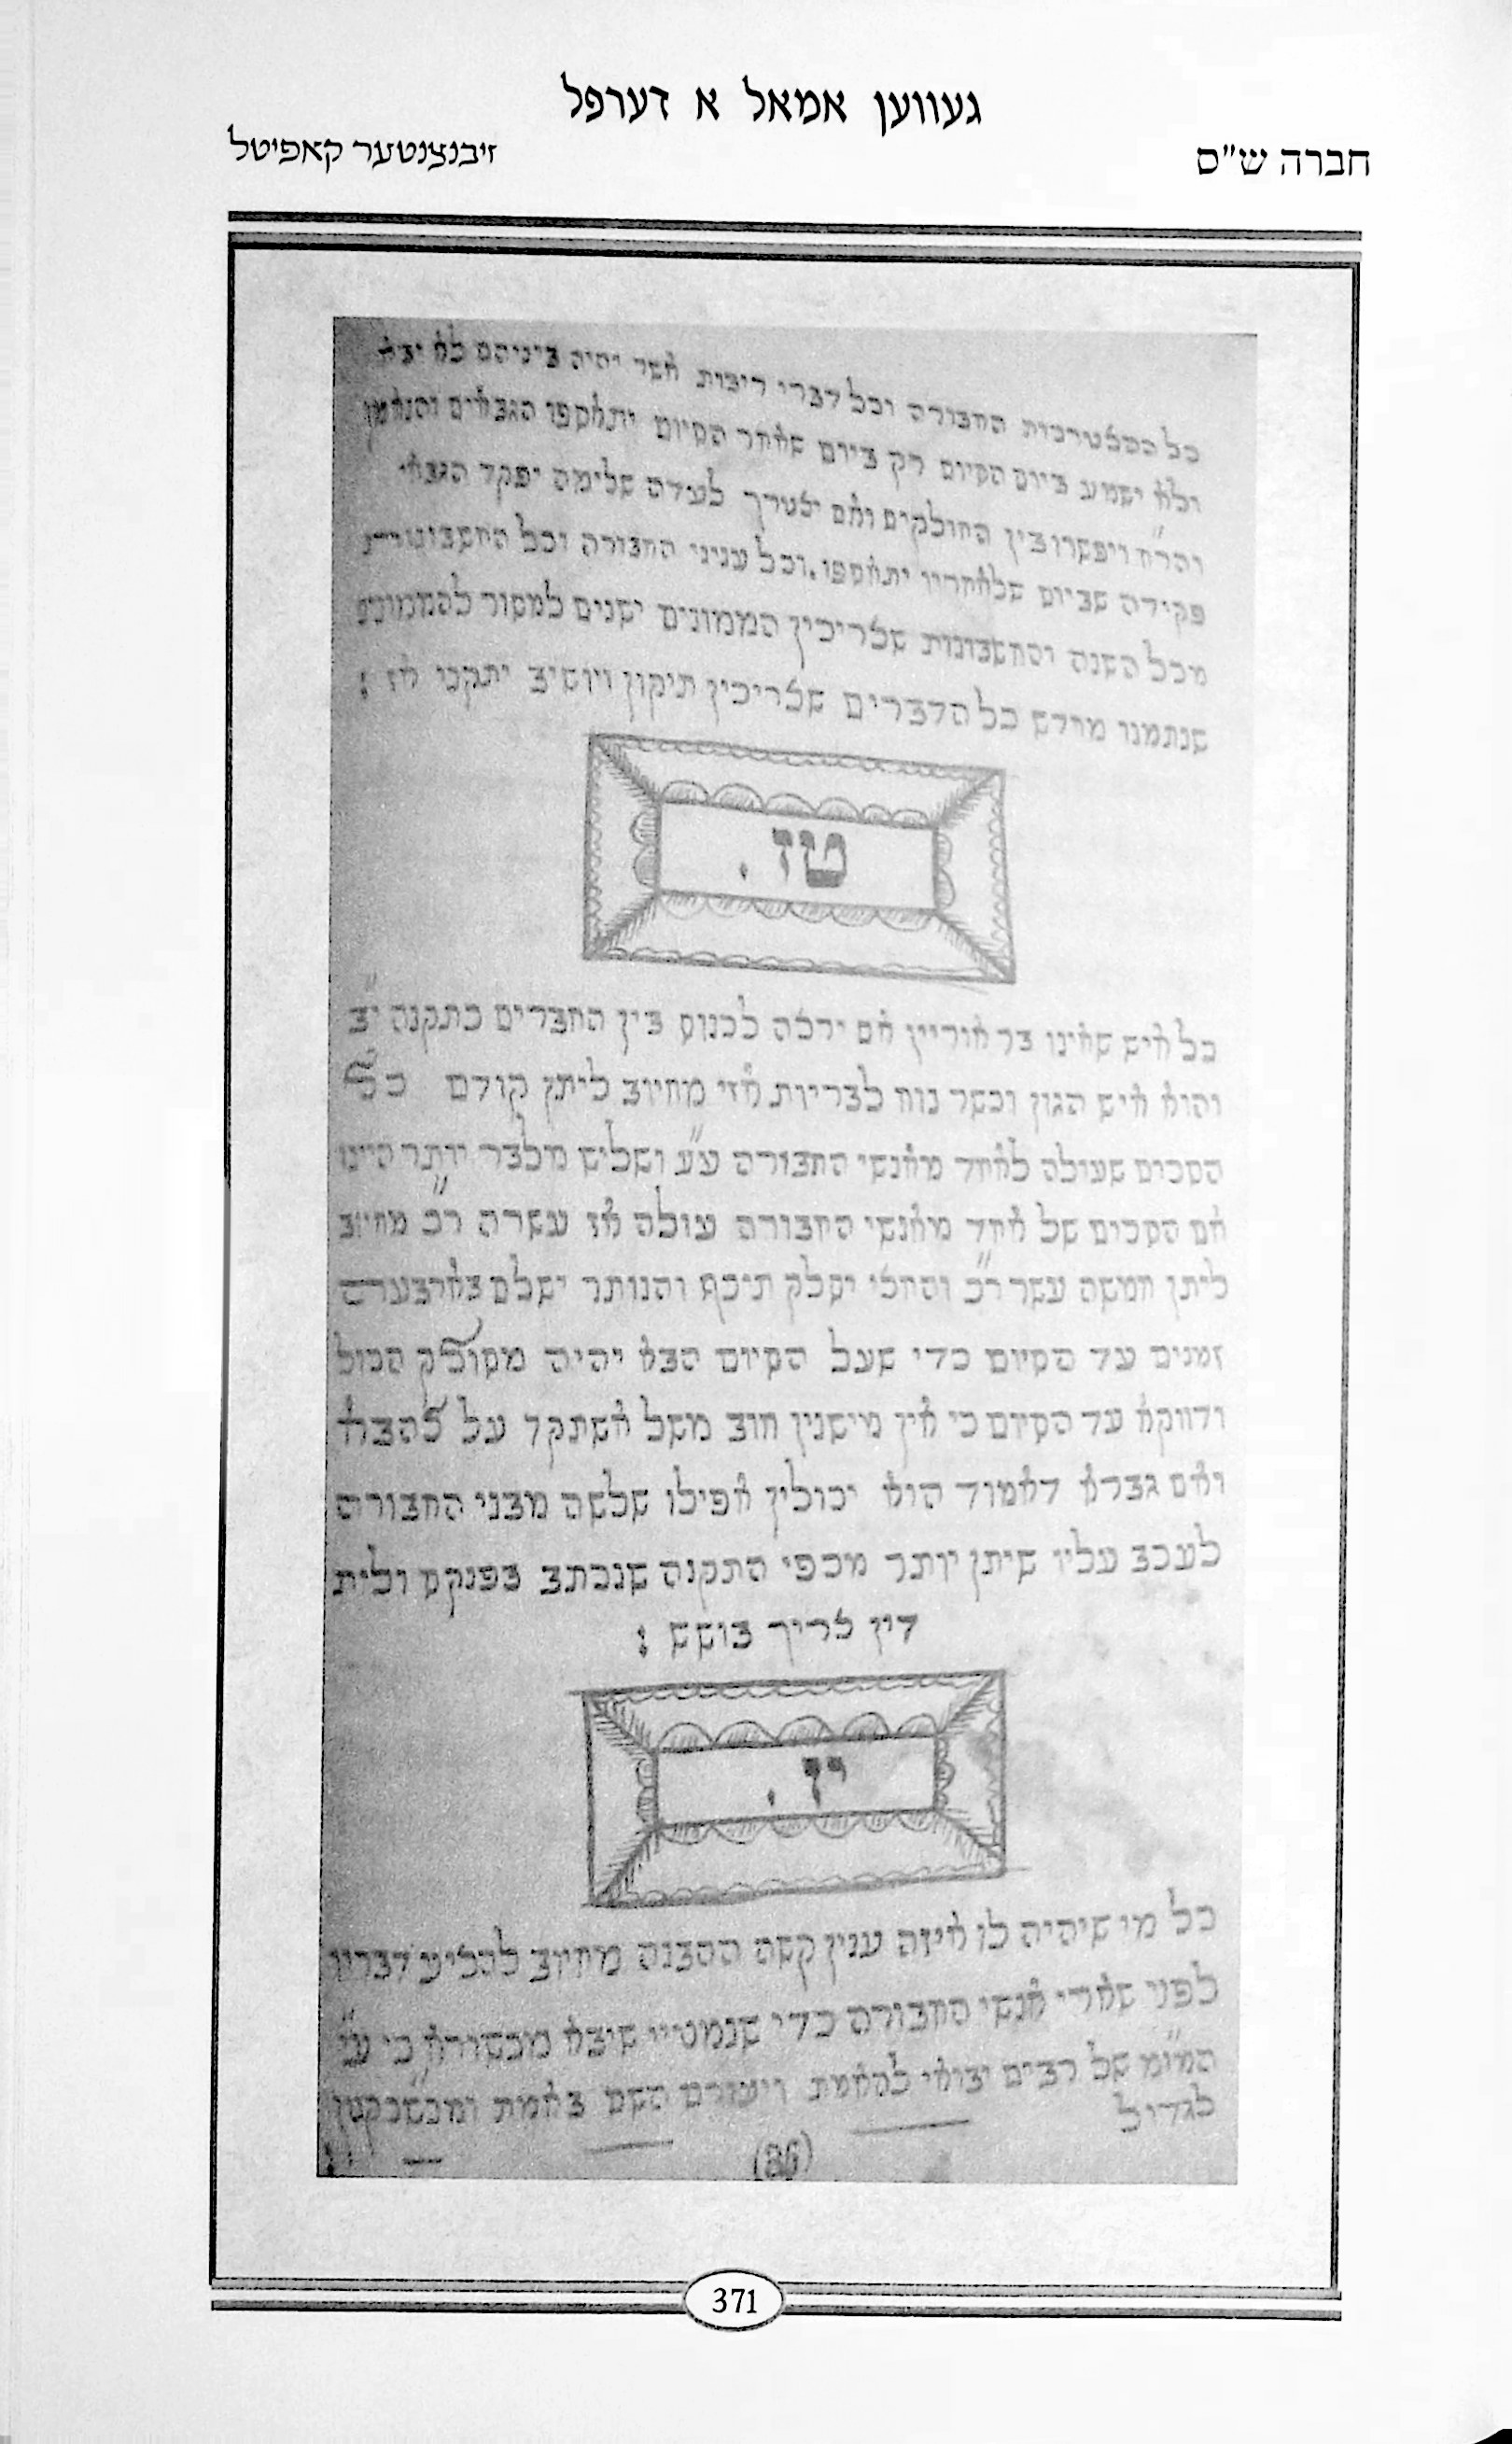 געווען אמאל א דערפל
חברה ש"ס
זיבנצנטער קאפיטל
כל הסצטרכות החבורה וכל דברי ריבות אשר יהיה ביניהם לא יצא
ולא ישמע ביום הסיום רק ביום שאחר הסיום יתאספו הגבאים והנאמן
והר"ח ויפשרו בין החולקים ואם יצטרך לעדה שלימה יפקד הגבאי
פקידה שביום שלאחריו יתאספו. וכל עניני החבורה וכל החשבונות
מכל השנה והחשבונות שצריכין הממונים ישנים למסור להממונים
שנתמנו מידש כל הדברים שצריכין תיקון ויושיב יתקנו אז :
טז .
כל איש שאינו בר אוריין אם ירצה לכנוס בין החברים כתקנה י"ב
והוא איש הגון וכשר נוח לבריות אזי מחויב ליתן קודם כל
הסכום שעולה לאחד מאנשי החבורה ע"ע ושליש מלבר יותר היינו
אם הסכום של אחד מאנשי החבורה עולה אז עשרה ר"כ מחויב
ליתן חמשה עשר ר"כ והחצי יסלק תיכף והנותר ישלם בארבעה
זמנים עד הסיום כדי שעל הסיום הבא יהיה מסולק הכול
ודווקא עד הסיום כי אין מישנין חוב משל אשתקד על להבא
ואם גברא דאמוד הוא יכולין אפילו שלשה מבני החבורה
לעכב עליו שיתן יותר מכפי התקנה שנכתב בפנקס ולית
דין צריך בושש :
יז .
כל מי שיהיה לו איזה ענין קשה ההבנה מחויב להציע דבריו
לפני שארי אנשי החבורה כדי שנמטיי שיבא מכשורא כי ע"י
המו"מ של רבים יבואי להאמת ויעזרם השם באמת
לגדיל
(86)
371